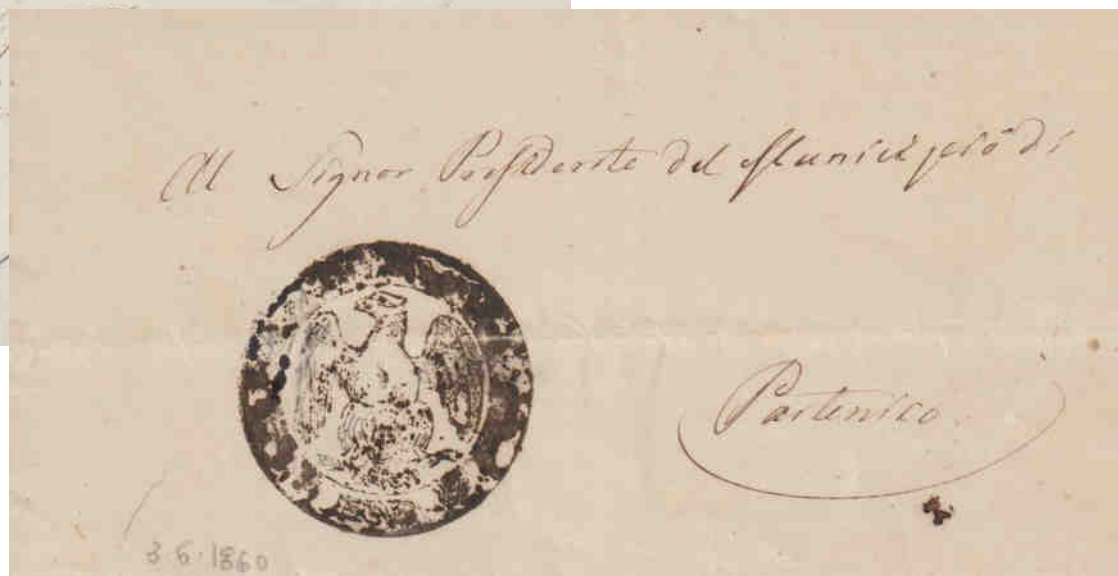 Al Signor Presidente del Municipio di
Partenico.
3 6 · 1860